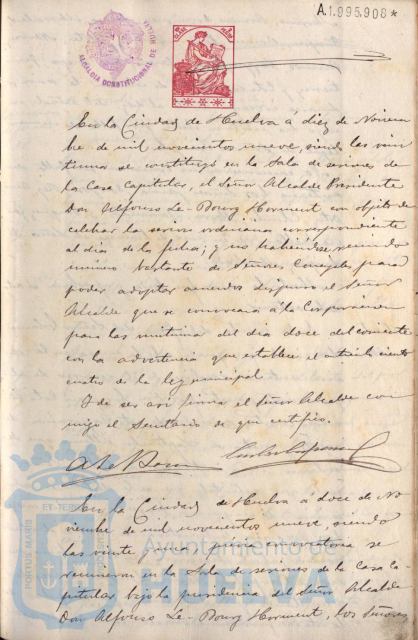 A.1.995.908*
ALCALDIA CONSTITUCIONAL DE HUELVA
En la Ciudad de Huelva á diez de Noviem
bre de mil novecientos nueve, siendo las vein
tiuna se constituyó en la Sala de sesiones de
la Casa Capitular, el Señor Alcalde Presidente
Don Alfonso Le-Bourg Horment con objeto de
celebrar la sesion ordinaria correspondiente
al dia de la fecha; y no habiéndose reunido
número bastante de Señores Concejales para
poder adoptar acuerdos dispuso el Señor
Alcalde que se convocara á la Corporación
para las veintiuna del dia doce del corriente
con la advertencia que establece el artículo ciento
cuatro de la ley municipal
Y de ser así firma el Señor Alcalde con
migo el Secretario de que certifico.
A Le Bourg
En la Ciudad de Huelva á doce de No
viembre de mil novecientos nueve, siendo
las veinte y una se
reunieron en la Sala de sesiones de la Casa Ca
pitular bajo la presidencia del Señor Alcalde
Don Alfonso Le-Bourg Horment, los Señores
PORTUS MARIS ET TER
Ayuntamiento de
HUELVA